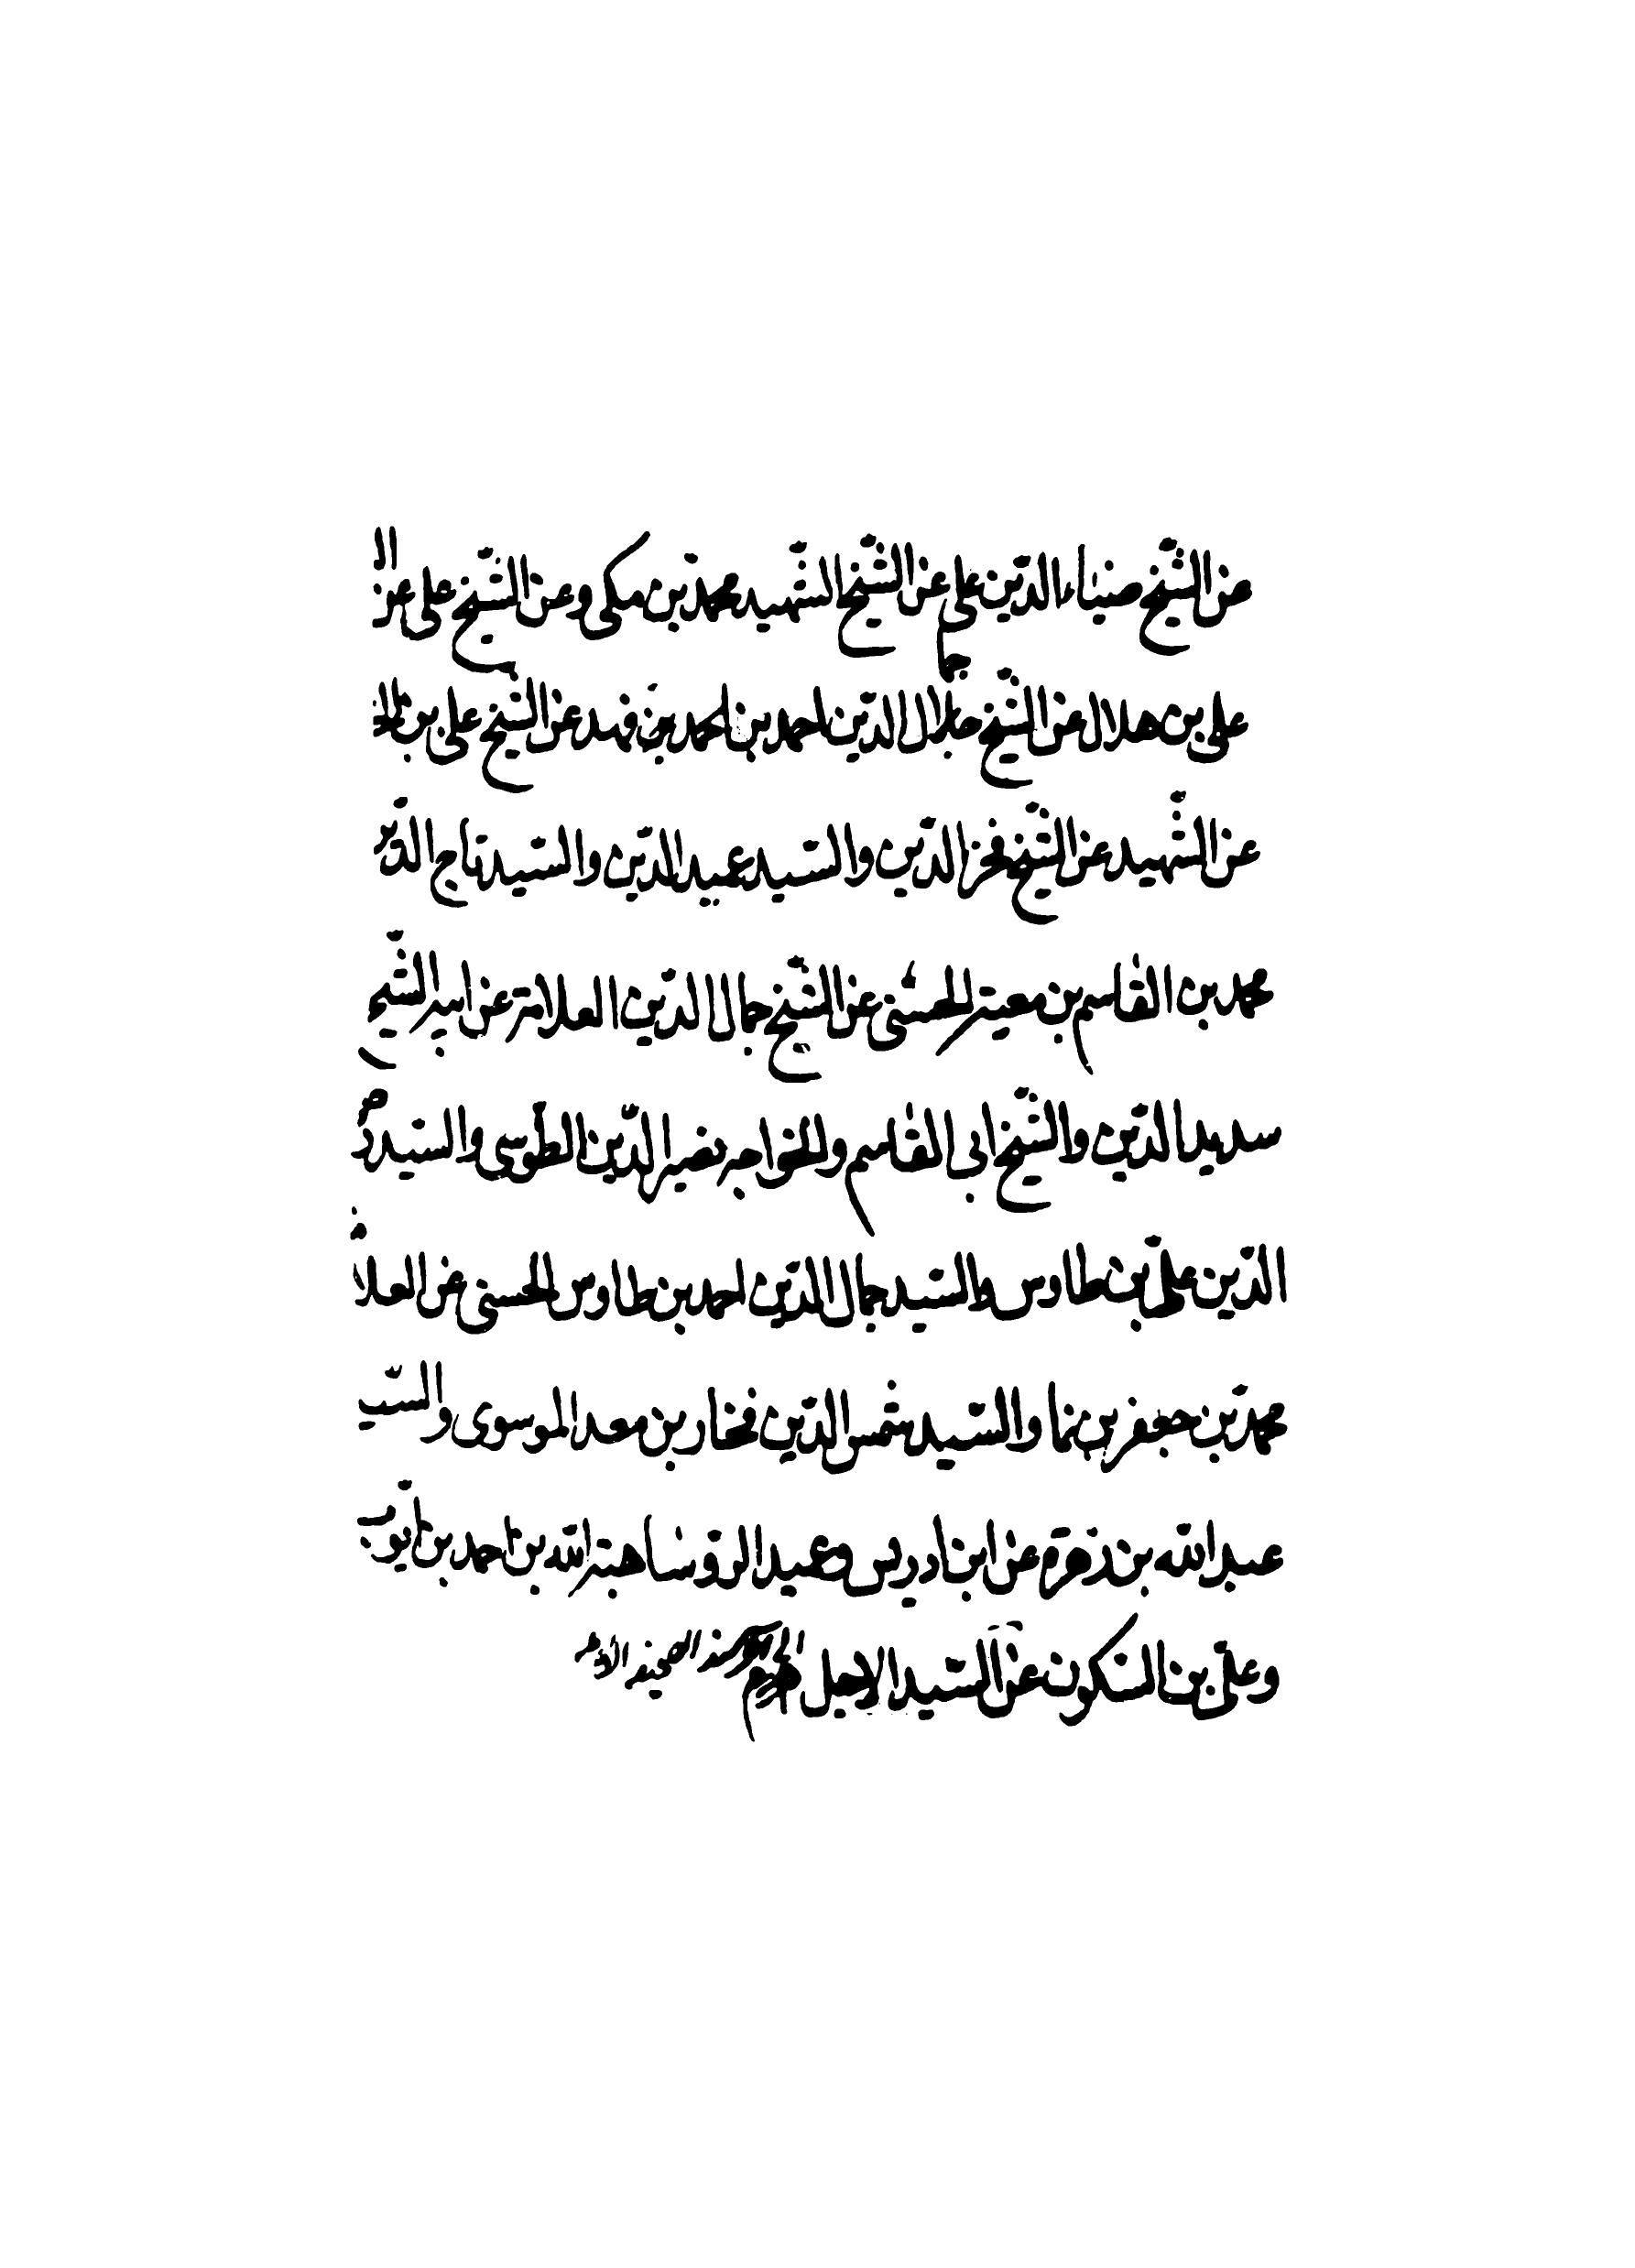 عن الشيخ ضياء الدين علي عن الشيخ الشهيد محمد بن مكي وعن الشيخ علي عن ال
علي بن هلال عن الشيخ جمال الدين احمد بن احمد بن فهد عن الشيخ علي بن
عن الشهيد عن الشيخ فخر الدين والسيد عميد الدين والسيد تاج الدين
محمد بن القاسم بن معية الحسني عن الشيخ جمال الدين العلامة عن ابيه الشيخ
سديد الدين والشيخ ابي القاسم والخواجه نصير الدين الطوسي والسيد
الدين علي بن طاوس والسيد جمال الدين احمد بن طاوس الحسني عن العلا
محمد بن جعفر بن نما والسيد شمس الدين فخار بن معد الموسوى والسيد
عبد الله بن زهرة عن ابن ادريس وعميد الرؤسا هبة الله بن احمد بن ايوب
وعلي بن السكون عن السيد الاجل